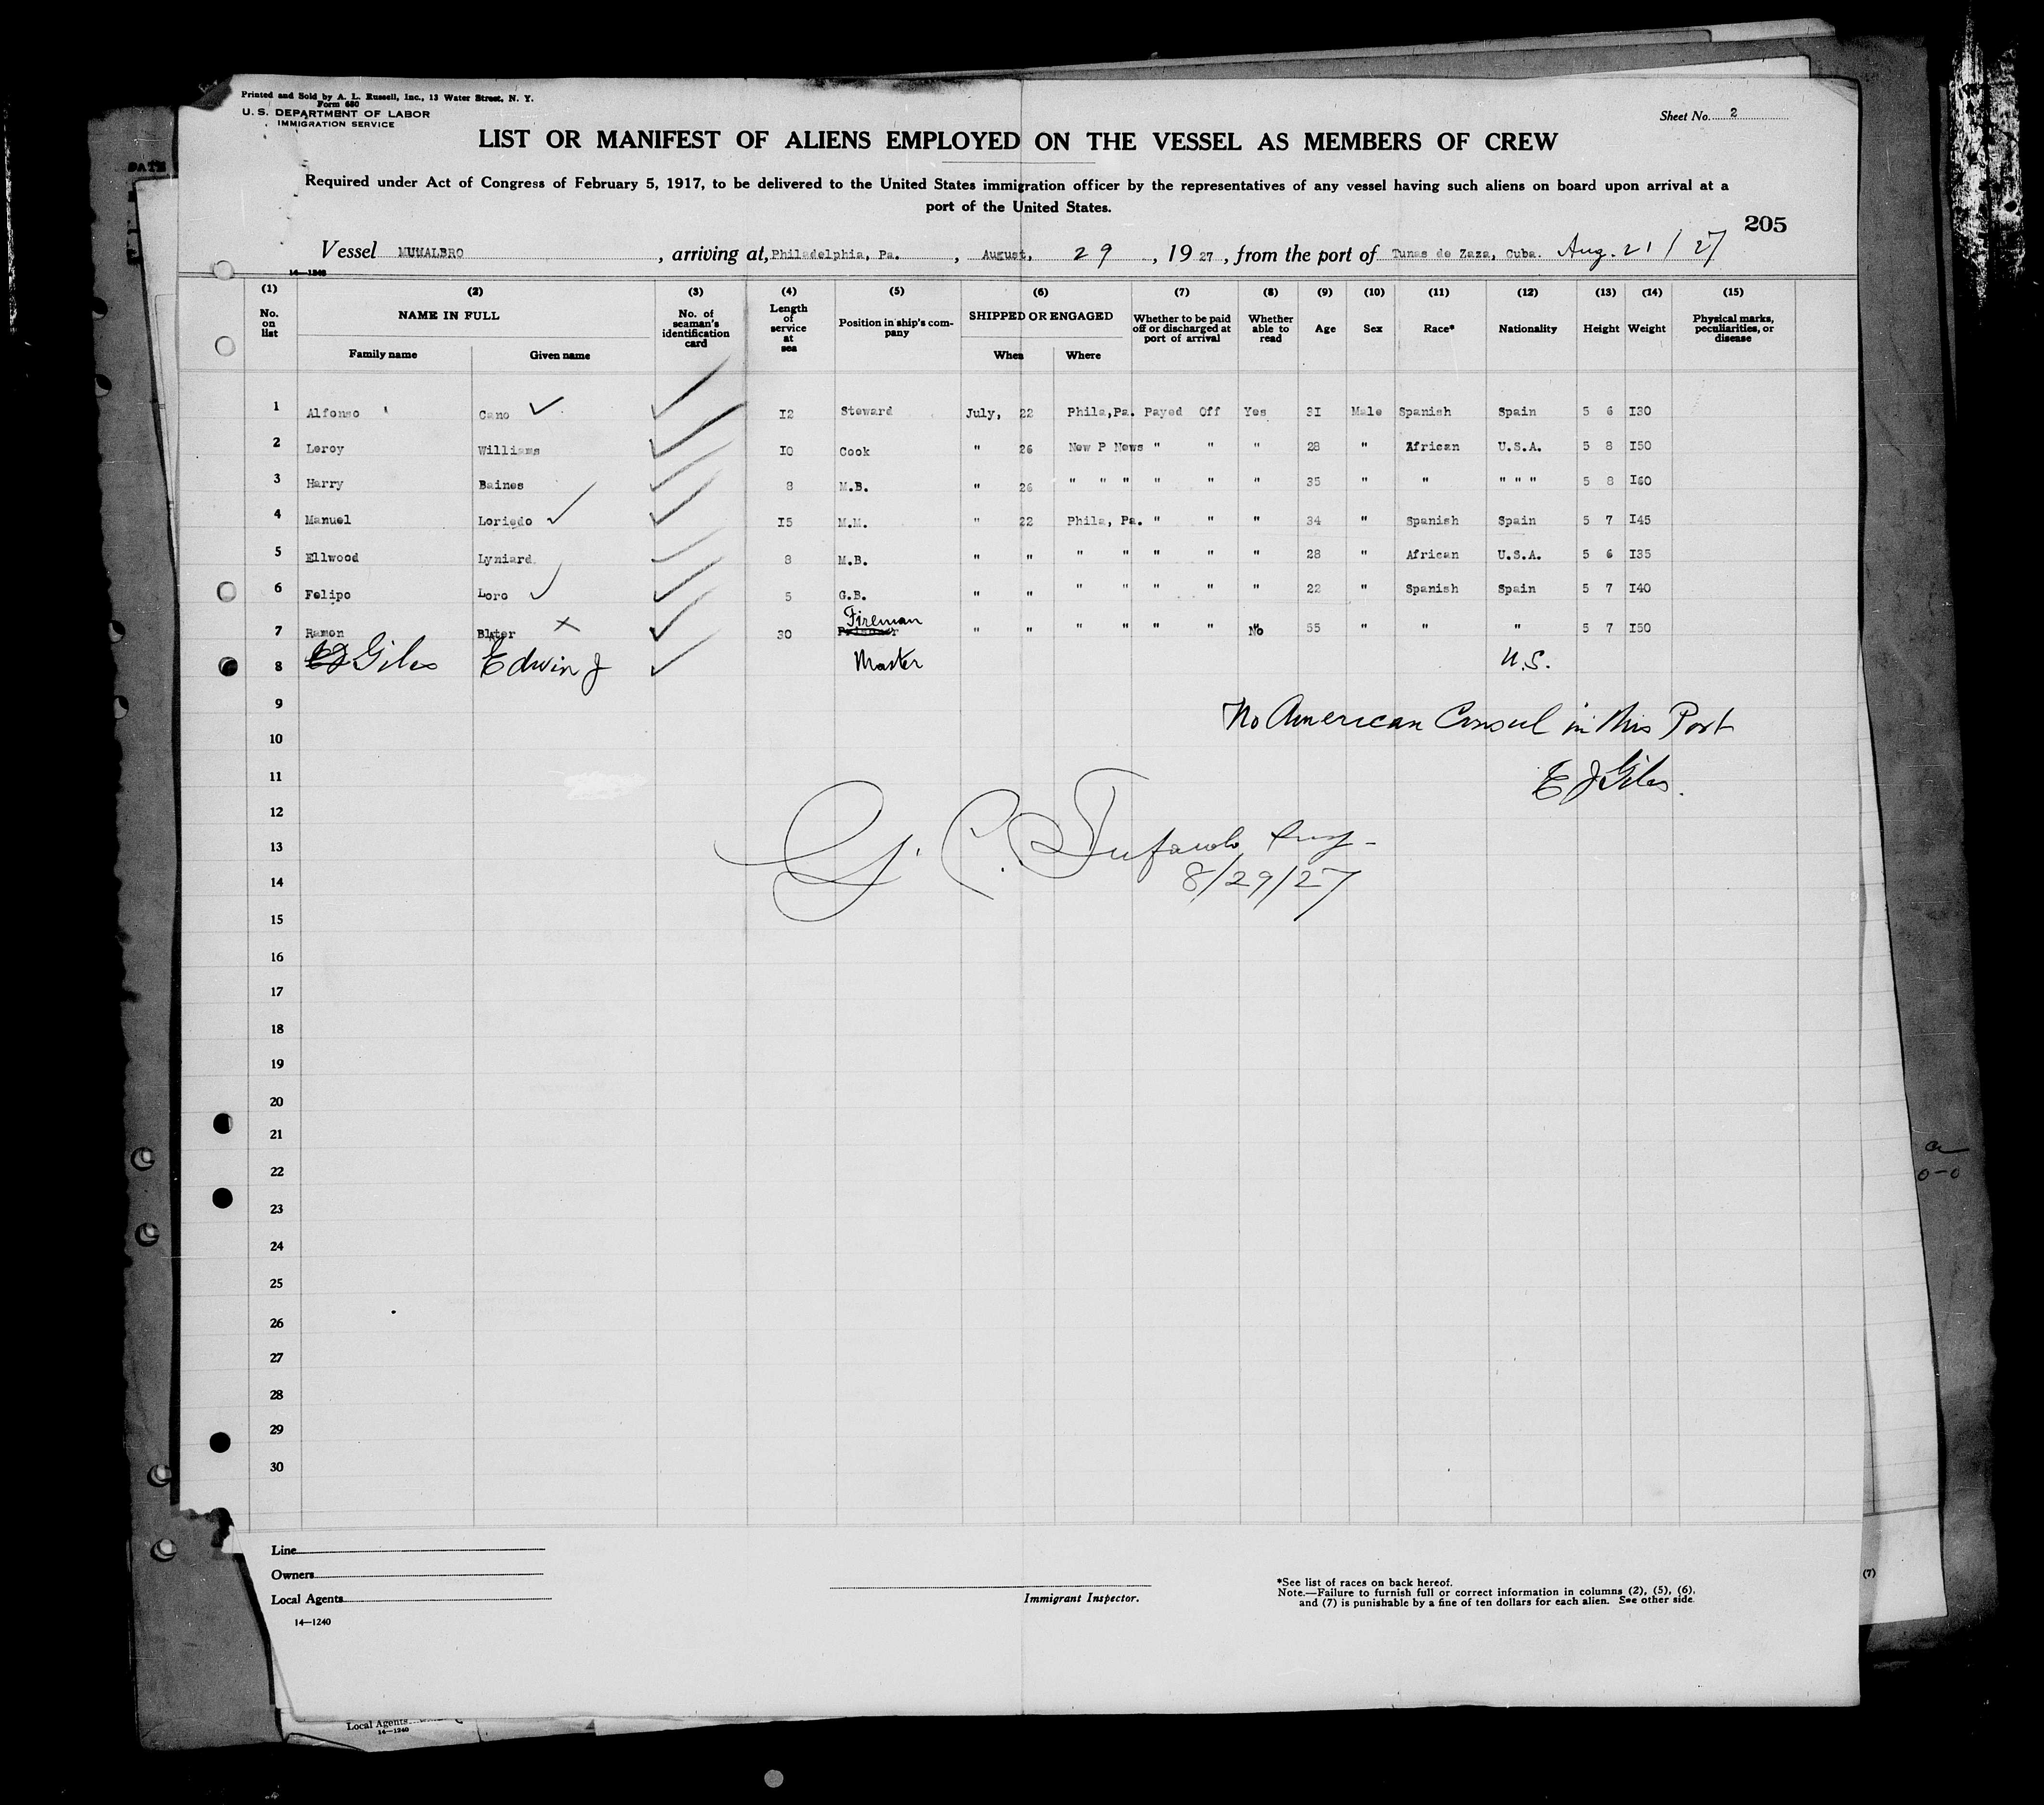 Printed and Sold by A. L. Russell, Inc., 13 Water Street, N. Y.
Form 680
U. S. DEPARTMENT OF LABOR
IMMIGRATION SERVICE
Sheet No. 2
LIST OR MANIFEST OF ALIENS EMPLOYED ON THE VESSEL AS MEMBERS OF CREW
Required under Act of Congress of February 5, 1917, to be delivered to the United States immigration officer by the representatives of any vessel having such aliens on board upon arrival at a
port of the United States.
205
Vessel MUMALBRO, arriving at, Philadelphia, Pa., August, 29, 19 27, from the port of Tunas de Zaza, Cuba. Aug. 21/27
14—1240
(1) (2) (3) (4) (5) (6) (7) (8) (9) (10) (11) (12) (13) (14) (15)
No. on list NAME IN FULL No. of seaman's identification card Length of service at sea Position in ship's company SHIPPED OR ENGAGED Whether to be paid off or discharged at port of arrival Whether able to read Age Sex Race* Nationality Height Weight Physical marks, peculiarities, or disease
Family name Given name When Where
1 Alfonso Cano 12 Steward July, 22 Phila,Pa. Payed Off Yes 31 Male Spanish Spain 5 6 130
2 Leroy Williams 10 Cook " 26 New P News " " " 28 " African U.S.A. 5 8 150
3 Harry Baines 8 M.B. " 26 " " " " " " 35 " " " " " 5 8 160
4 Manuel Loriedo 15 M.M. " 22 Phila, Pa. " " " 34 " Spanish Spain 5 7 145
5 Ellwood Lyniard 8 M.B. " " " " " " " 28 " African U.S.A. 5 6 135
6 Felipo Loro 5 G.B. " " " " " " " 22 " Spanish Spain 5 7 140
7 Ramon 30 Fireman " " " " " " No 55 " " " 5 7 150
8 Giles Edwin J Master U.S.
9
No American Consul in this Port
10
11
E J Giles.
12
13
14
8/29/27
15
16
17
18
19
20
21
22
23
24
25
26
27
28
29
30
Line
Owners
Local Agents
14—1240
Immigrant Inspector.
*See list of races on back hereof.
Note.—Failure to furnish full or correct information in columns (2), (5), (6),
and (7) is punishable by a fine of ten dollars for each alien. See other side.
(7)
Local Agents
14—1240